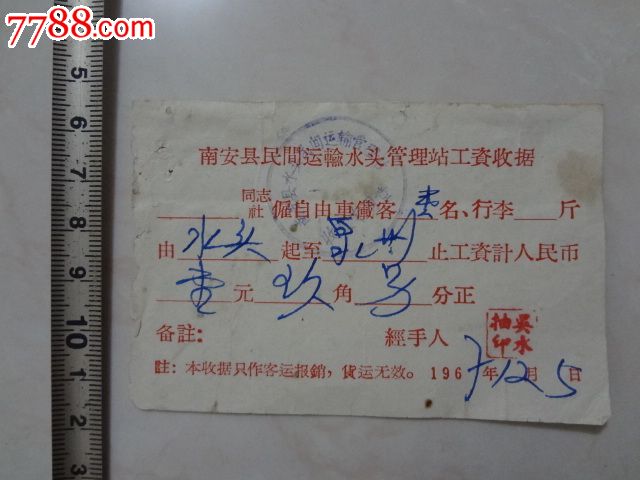 7788.com
南安县民間运輸水头管理站工資收据
同志
社 僱自由車儎客壹名、行李 斤
由水头起至 止工資計人民币
壹元玖角 分正
备註： 經手人
吳水
抽印
註：本收据只作客运报銷，貨运无效。1967年12月5日
5
6
7
8
9
10
1